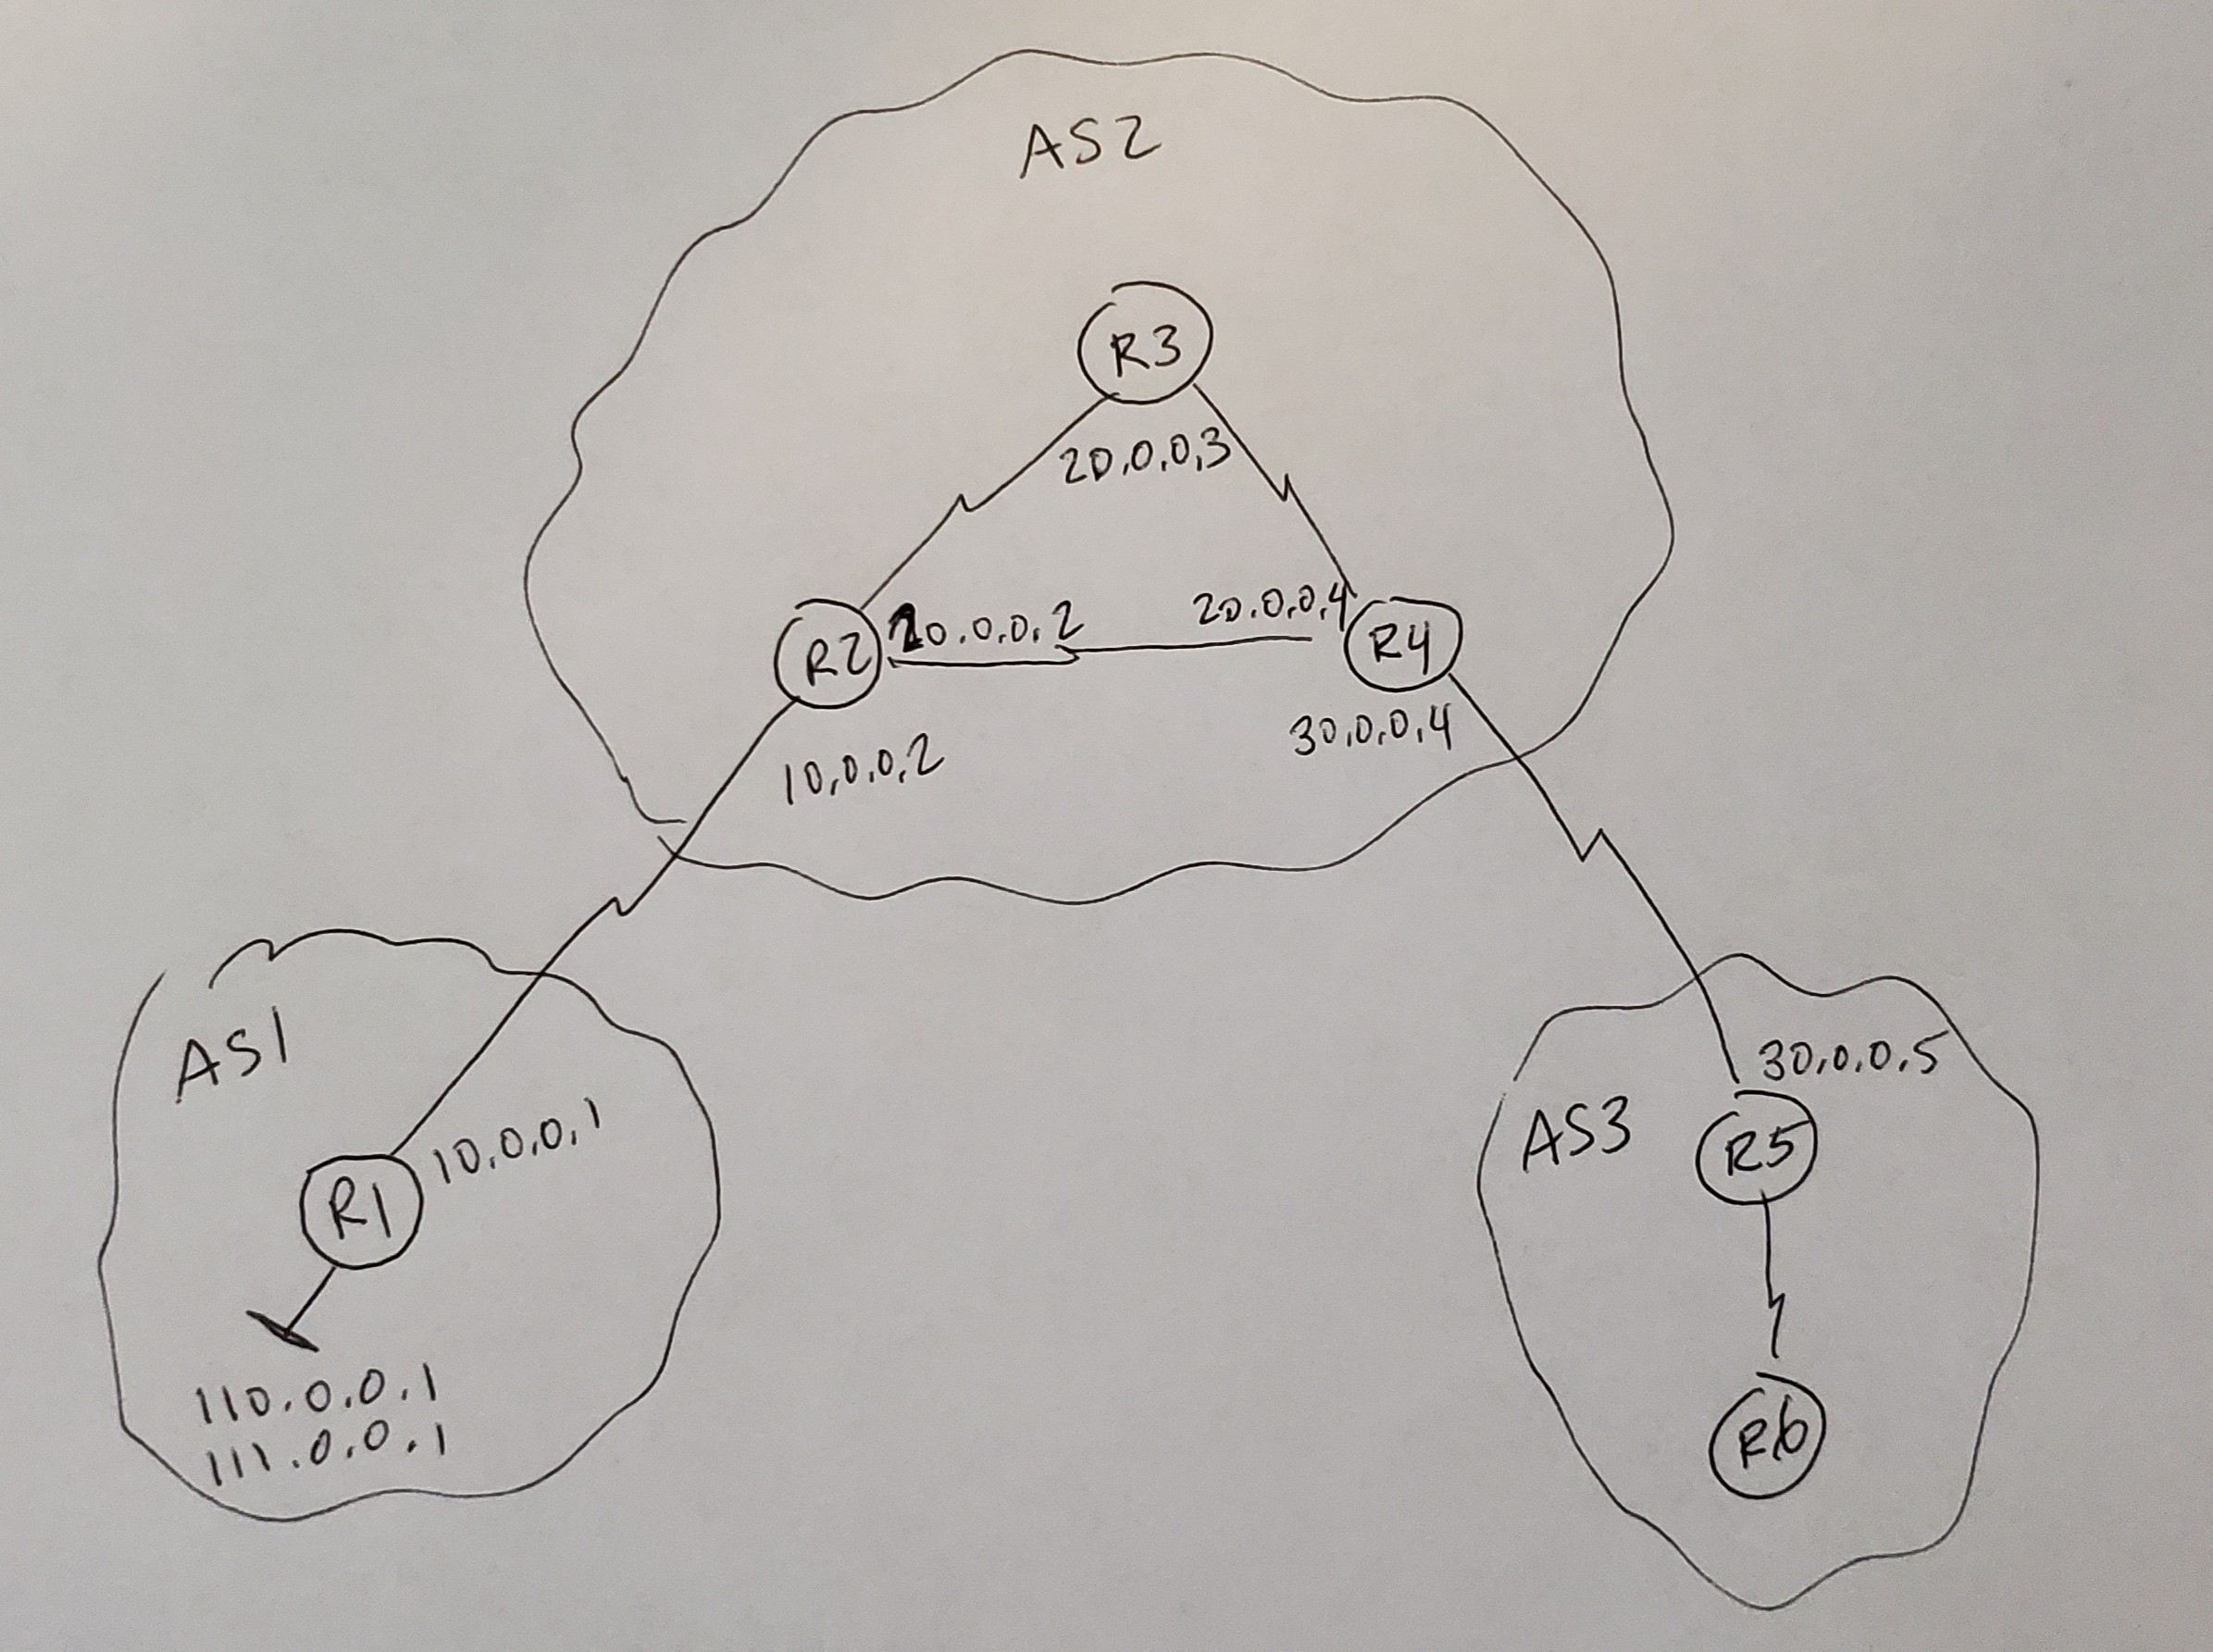 AS2
R3
20.0.0.3
R2
20.0.0.2
20.0.0.4
R4
10.0.0.2
30.0.0.4
AS1
10.0.0.1
R1
110.0.0.1
111.0.0.1
30.0.0.5
AS3
R5
R6